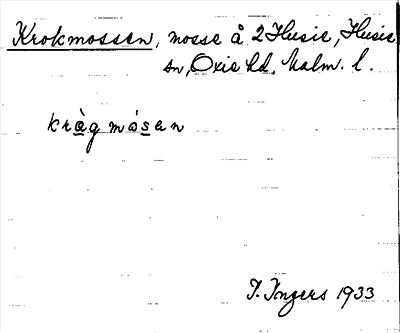 Krokmossen, mosse å 2 Husie, Husie
sn, Oxie hd. Malm. l.
kràg másen
I. Ingers 1933